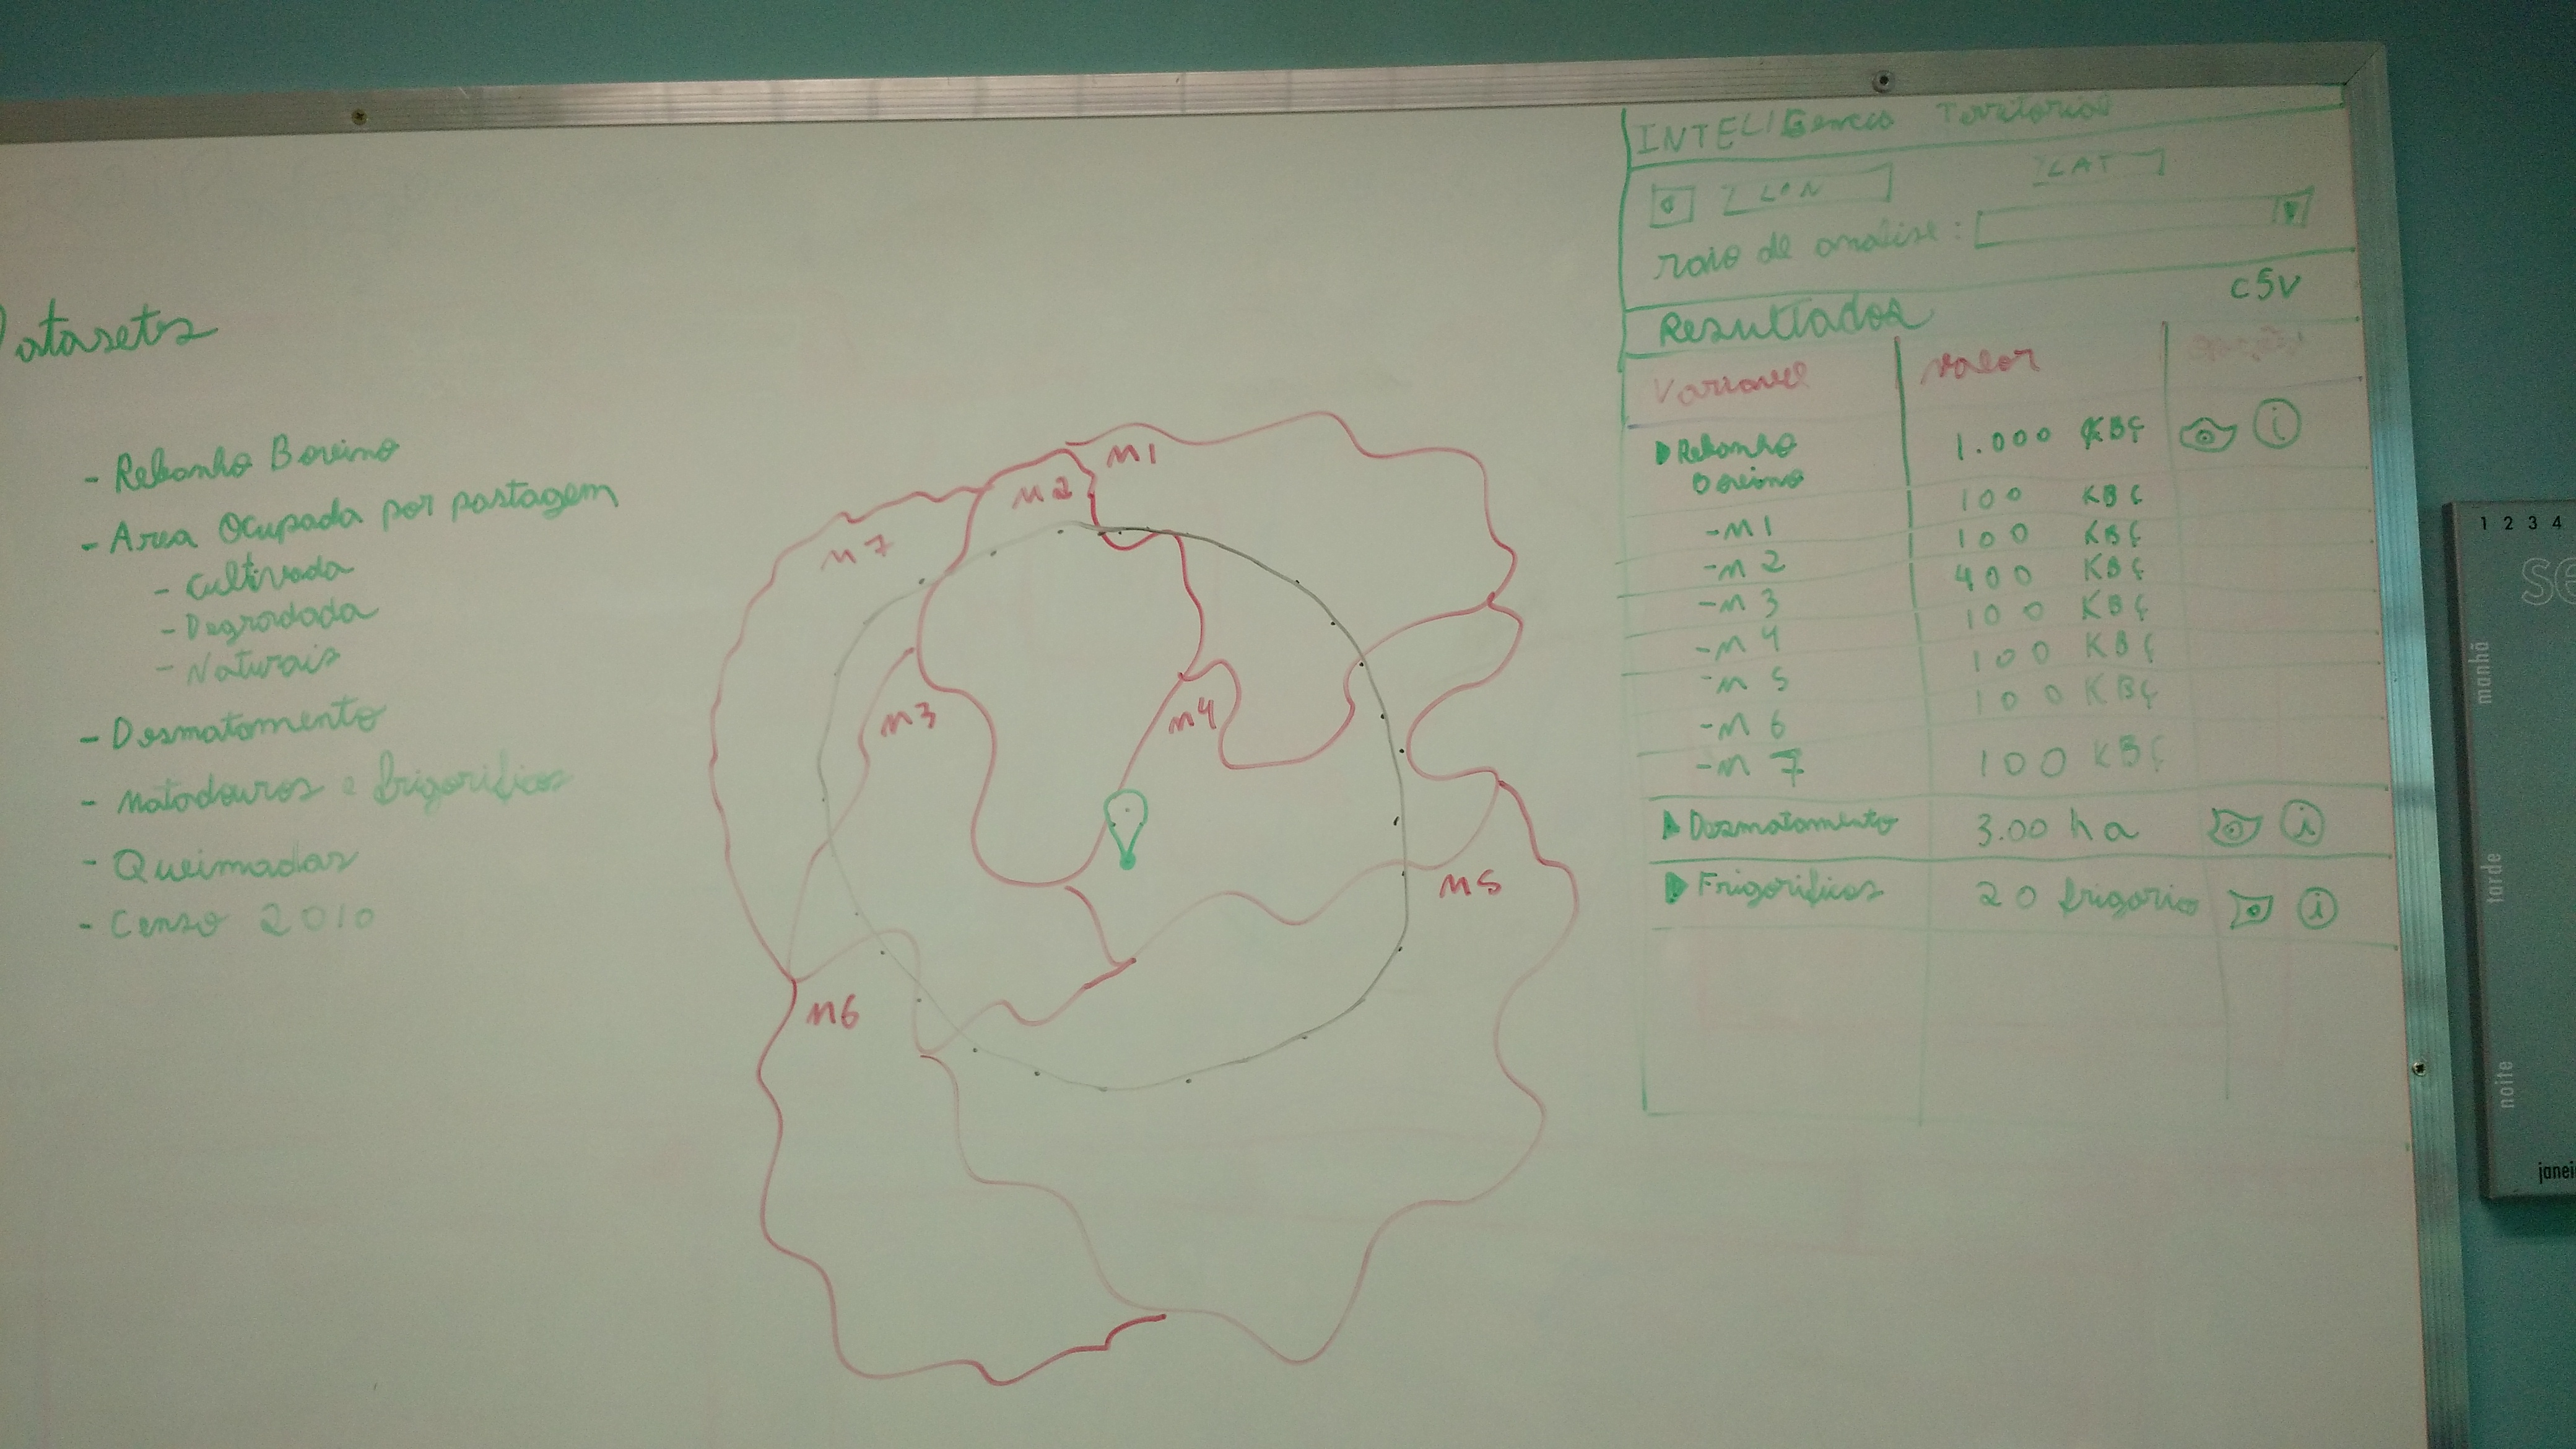 Datasets
- Rebanho Bovino
- Area Ocupada por pastagem
- Cultivada
- Degradada
- Naturais
- Desmatamento
- Matadouros e frigorificos
- Queimadas
- Censo 2010
M1
M2
M7
M3
M4
M5
M6
INTELIGencia Territorial
LON LAT
raio de analise:
CSV
Resultados
Variavel valor
Rebanho Bovino 1.000 KBÇ i
-M1 100 KBÇ
-M2 100 KBÇ
-M3 400 KBÇ
-M4 100 KBÇ
-M5 100 KBÇ
-M6 100 KBÇ
-M7 100 KBÇ
Desmatamento 3.00 ha i
Frigorificos 20 frigorico i
1 2 3 4
se
manhã
tarde
noite
janei